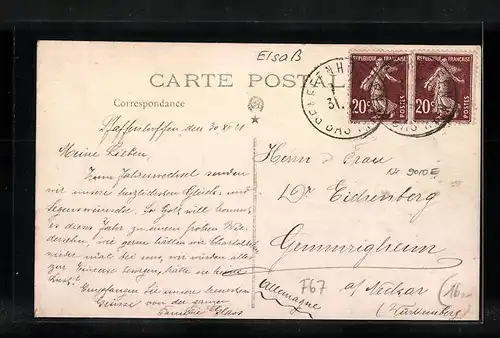 Elsaß
CARTE POSTALE
Correspondance
REPUBLIQUE FRANÇAISE
20c
POSTES
REPUBLIQUE FRANÇAISE
20c
POSTES
31.
Pfaffenhoffen, den 30 XII 21
Meine Lieben.
Zum Jahreswechsel senden
wir unsere herzlichsten Glück- und
Segenswünsche. So Gott will kommt
es dieses Jahr zu einem frohen Wie-
dersehen, wie gerne hätten wir Charlotte
wieder mal bei uns, wir würden alles
zur Einreise besorgen, hätte sie
Lust?
Empfangen Sie unsere herzlichsten
Grüsse von der ganzen
Familie
Herrn & Frau
Dr. Eichenberg
Gemmrigheim
a/ Neckar
(Württemberg)
Allemagne
9010E
F67
16